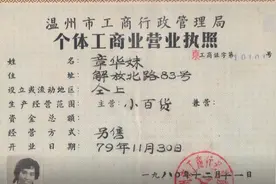 温州市工商行政管理局
个体工商业营业执照
工商证字第10101号
姓名 章华妹
住址 解放北路83号
设立或流动地区 仝上
生产经营范围 主营 小百货 兼营
资金总额
经营方式 另售
开业日期 79年11月30日
一九八〇年十二月十一日